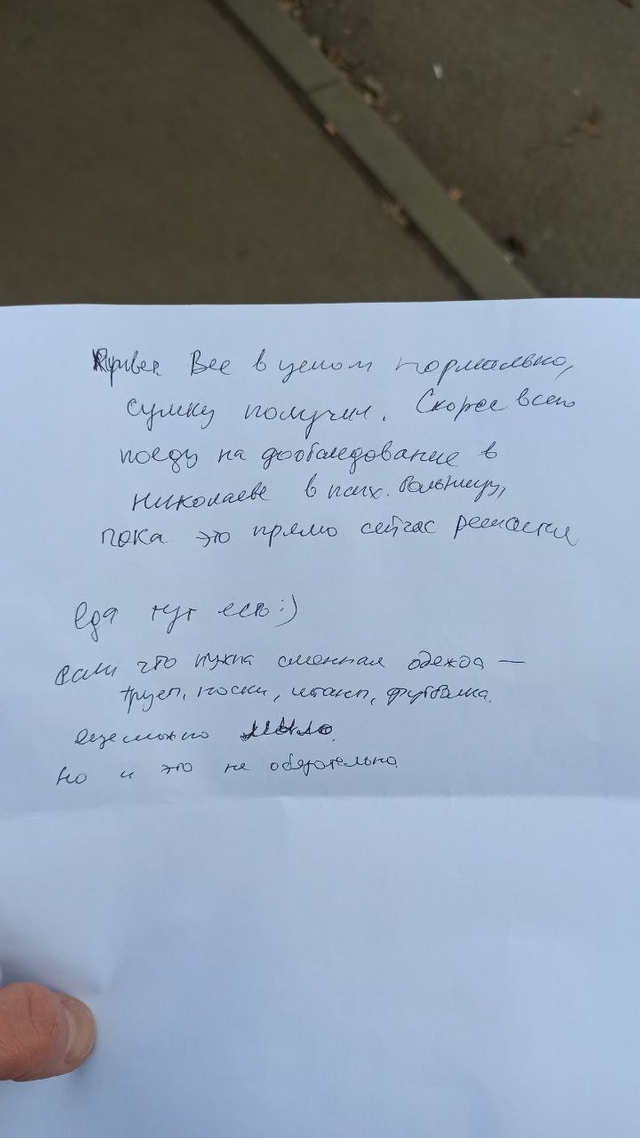 Привет Все в целом нормально,
сумку получил. Скорее всего
поеду на дообследование в
Николаеве в псих. больницу,
пока это прямо сейчас решается
Еда тут есть :)
Если что нужна сменная одежда —
трусы, носки, штаны, футболка.
еще можно мыло.
Но и это не обязательно